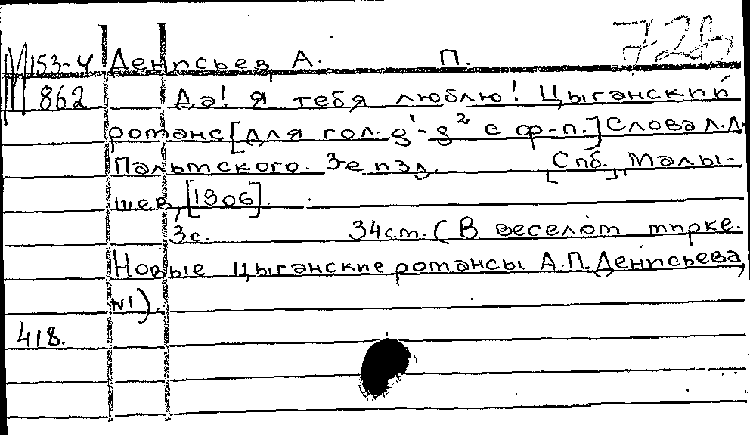 М153-4 Денисьев А. П. 72в
862 Да! Я тебя люблю! Цыганский
романс [для гол. g¹-g² с ф-п.] Слова Л.Д.
Пальмского. 3е изд. [Спб.], Малы-
шев, [1906].
3с. 34см. (В веселом мирке.
Новые цыганские романсы А.П. Денисьева,
№1).
418.